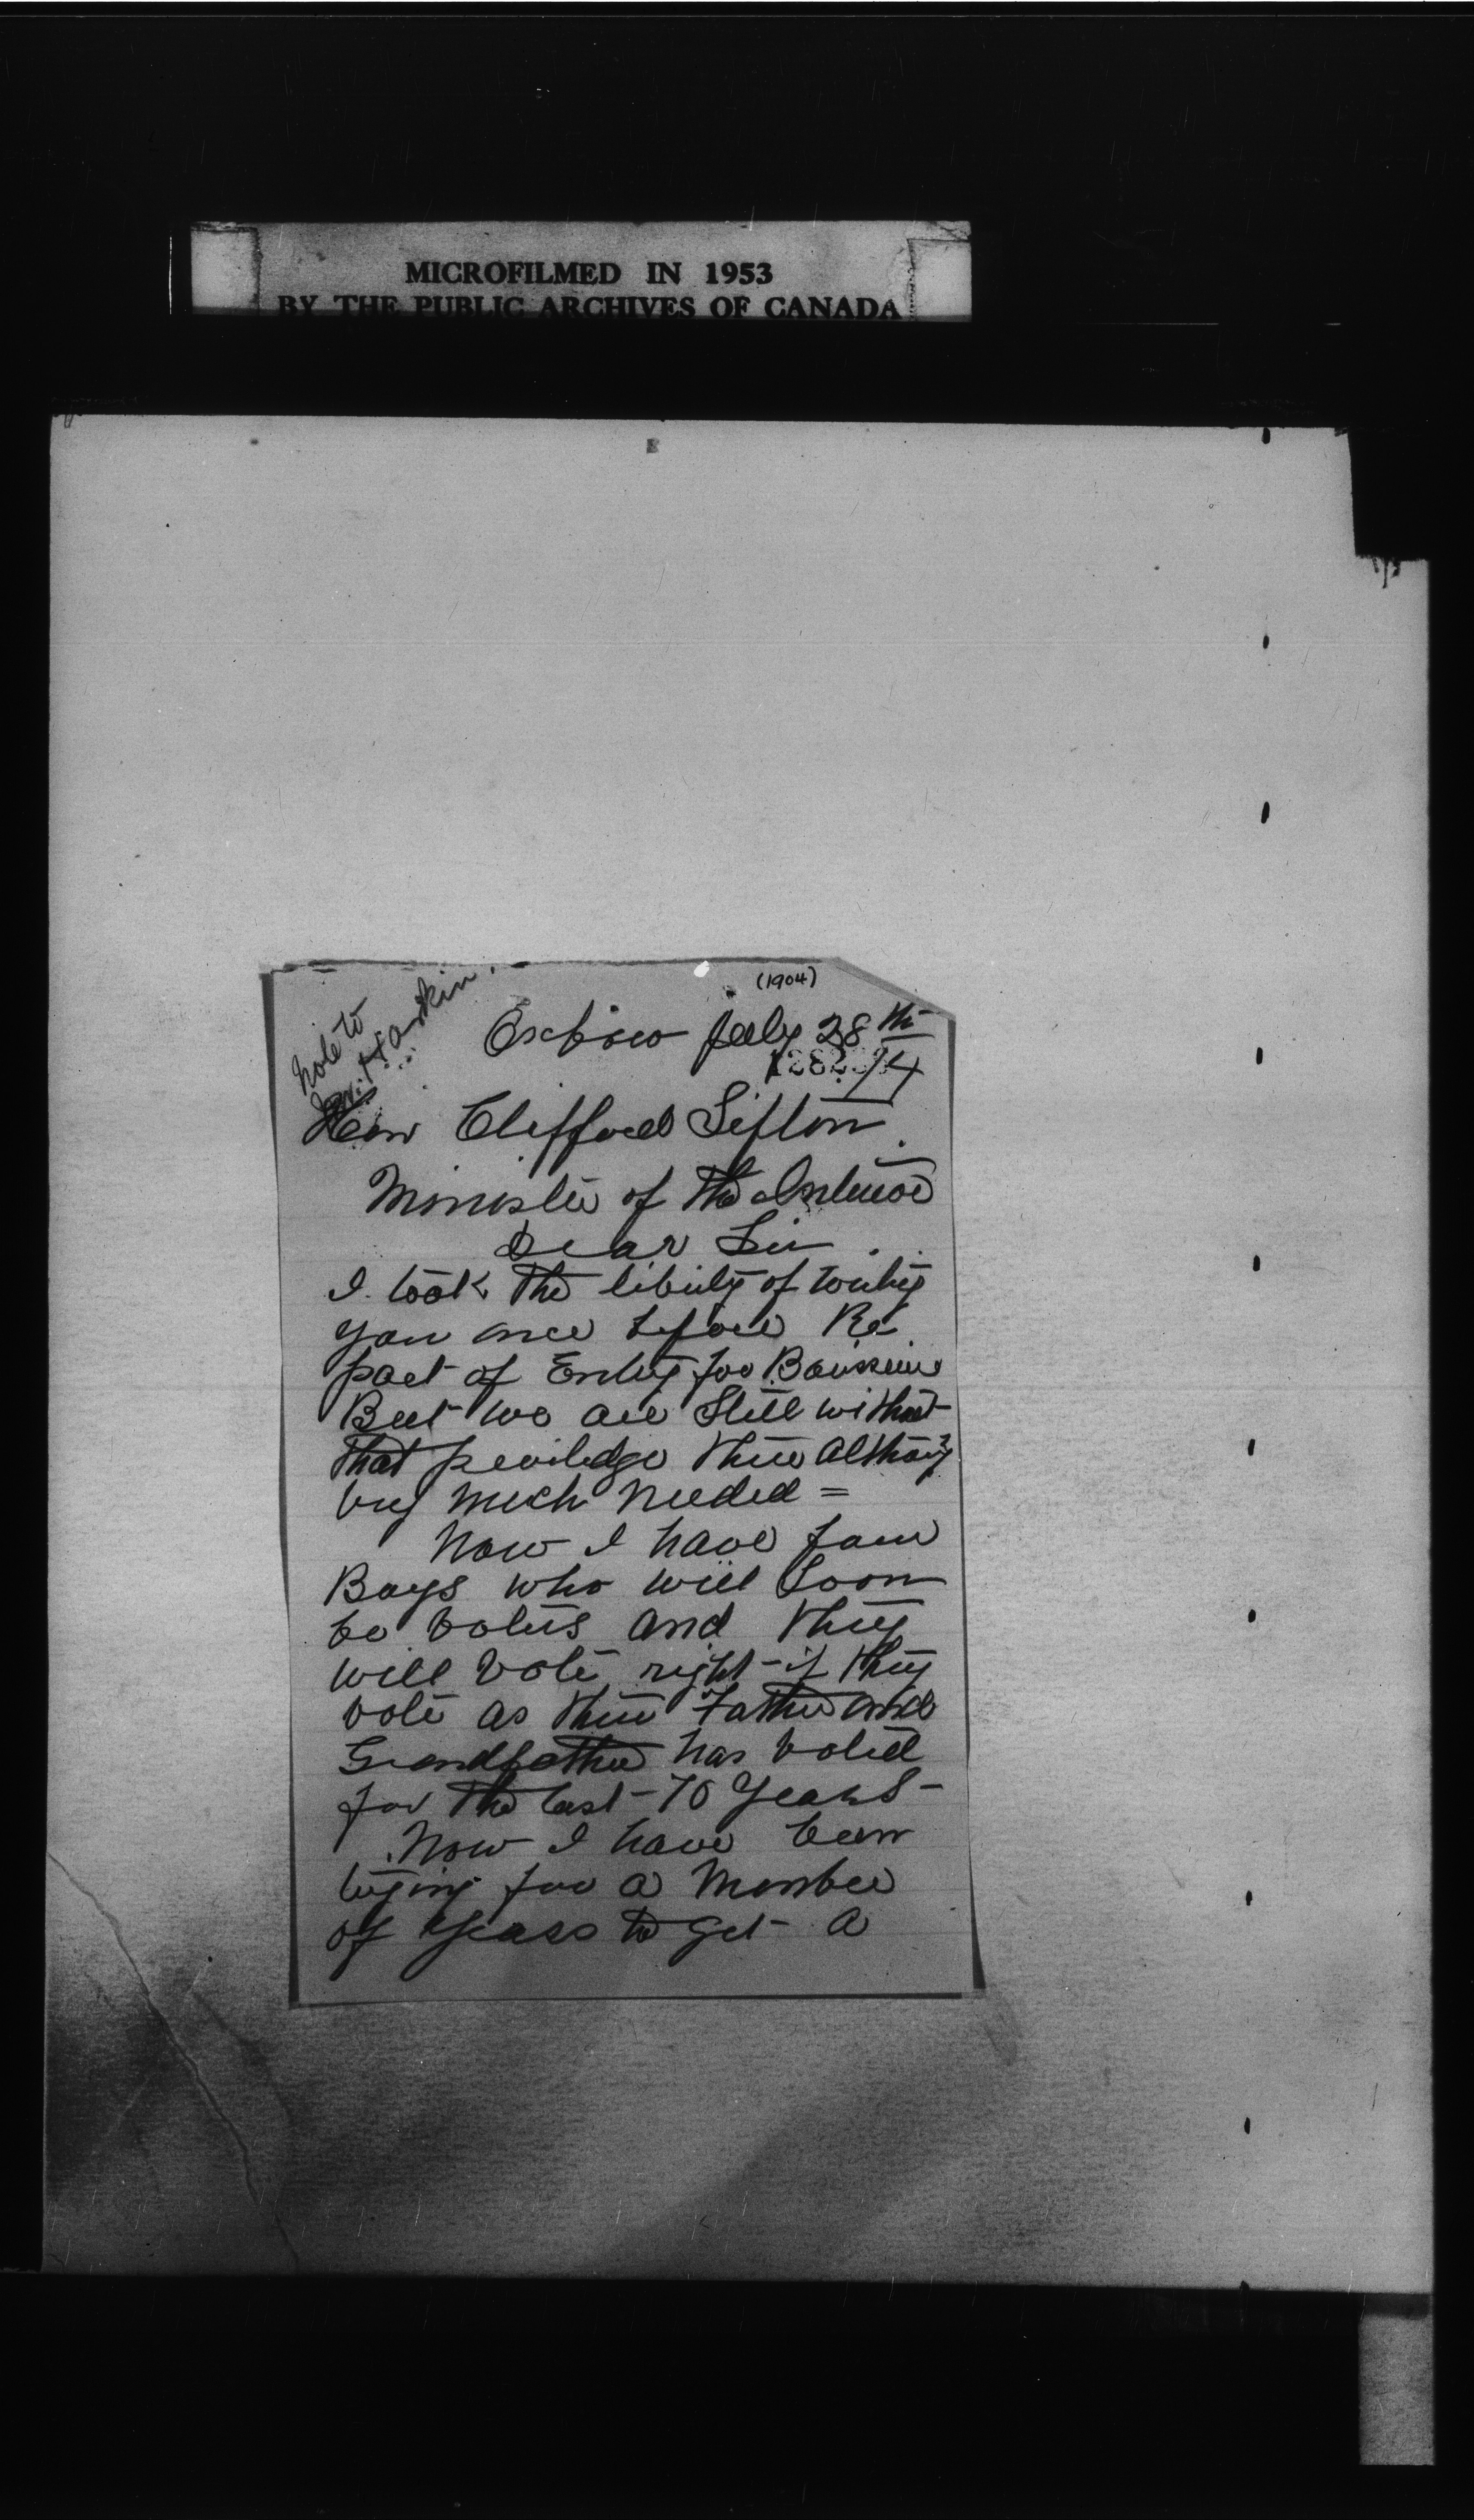 MICROFILMED IN 1953
BY THE PUBLIC ARCHIVES OF CANADA
(1904)
note to
Mr. Harkin.
Oxbow July 28th
/4
Hon Clifford Sifton
Minister of the Interior
Dear Sir
I took the liberty of writing
you once before Re
port of Entry for
But we are still without
that priviledge there Althoug
very much needed =
Now I have four
Boys who will soon
be voters and they
will vote right if they
vote as their Father and
Grandfather has voted
for the last 70 years
Now I have been
trying for a Number
of years to get a